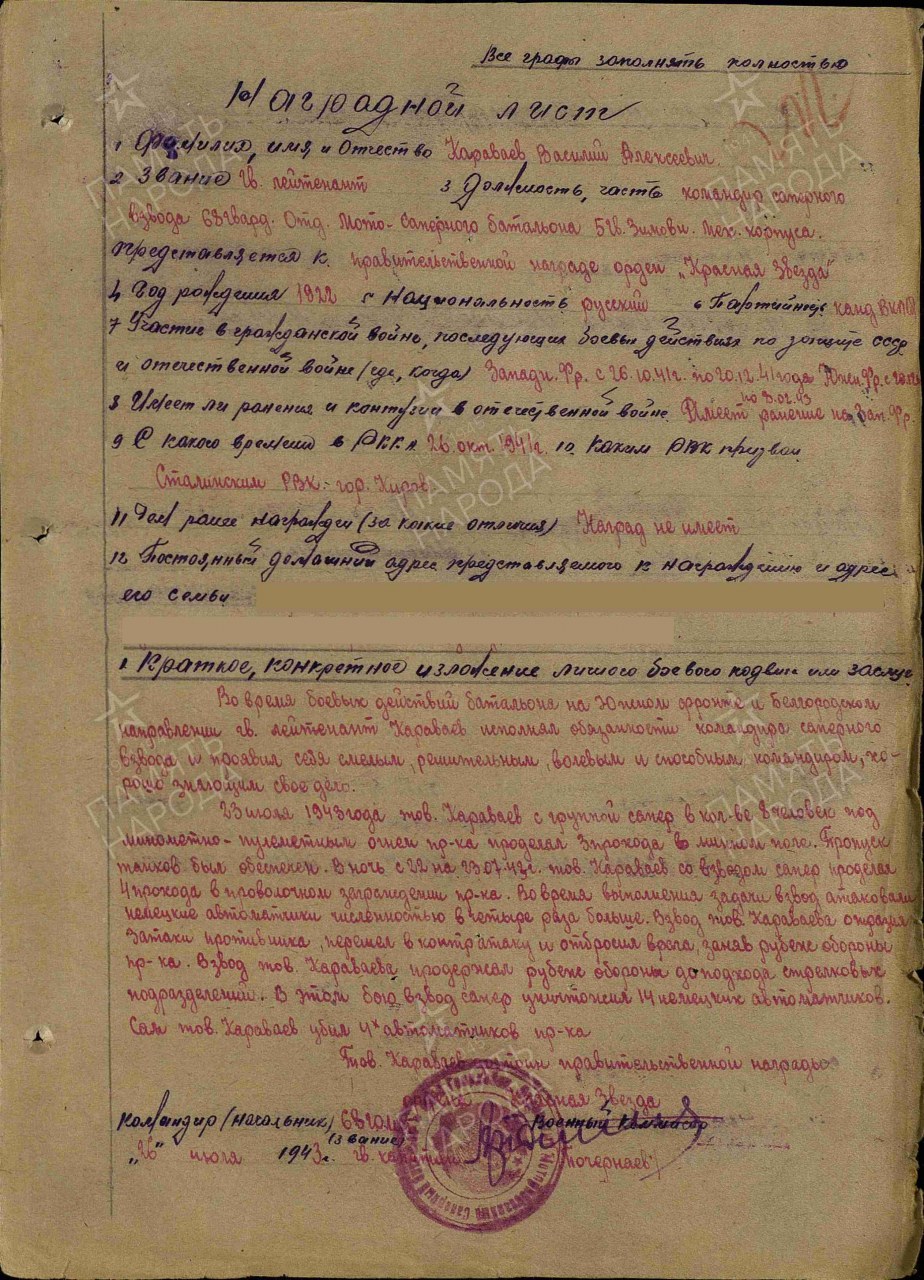 Все графы заполнять полностью
Наградной лист
1 Фамилия, имя, и Отчество Караваев Василий Алексеевич.
2 Звание гв. лейтенант 3 Должность, часть командир саперного
взвода 68 гвард. Отд. Мото-саперного батальона 5 Гв. Зимовн. Мех. корпуса.
Представляется к правительственной награде орден „Красная Звезда"
4 Год рождения 1922 5 Национальность русский 6 Партийность канд. ВКП(б)
7 Участие в гражданской войне, последующих боевых действиях по защите СССР
и отечественной войне (где, когда) Западн. Фр. с 26.10.41г. по 20.12.41 года Южн. Фр. с
по 3.02.43
8 Имеет ли ранения и контузии в отечественной войне Имеет ранение на Зап. Фр.
9 С какого времени в РККА 26 окт. 1941г. 10 Каким РВК призван
Сталинским РВК - гор. Киров
11 Чем ранее награжден (за какие отличия) Наград не имеет
12 Постоянный домашний адрес представляемого к награждению и адрес
его семьи
1 Краткое, конкретное изложение личного боевого подвига или заслуг
Во время боевых действий батальона на Южном фронте и Белгородском
направлении гв. лейтенант Караваев исполнял обязанности командира саперного
взвода и проявил себя смелым, решительным, волевым и способным командиром, хо-
рошо знающим свое дело.
23 июля 1943 года тов. Караваев с группой сапер в кол-ве 8 человек под
минометно-пулеметным огнем пр-ка проделал 3 прохода в минном поле. Пропуск
танков был обеспечен. В ночь с 22 на 23.07.43г. тов. Караваев со взводом сапер проделал
4 прохода в проволочном заграждении пр-ка. Во время выполнения задачи взвод атаковали
немецкие автоматчики численностью в четыре раза больше. Взвод тов. Караваева отразил
3 атаки противника, перешел в контратаку и отбросил врага, заняв рубеж обороны
пр-ка. Взвод тов. Караваева продержал рубеж обороны до подхода стрелковых
подразделений. В этом бою взвод сапер уничтожил 14 немецких автоматчиков.
Сам тов. Караваев убил 4х автоматчиков пр-ка
Тов. Караваев достоин правительственной награды
Красная Звезда
Командир (начальник) 68 Военный Комиссар
(звание)
„26" июля 1943г. гв. капитан Почернаев